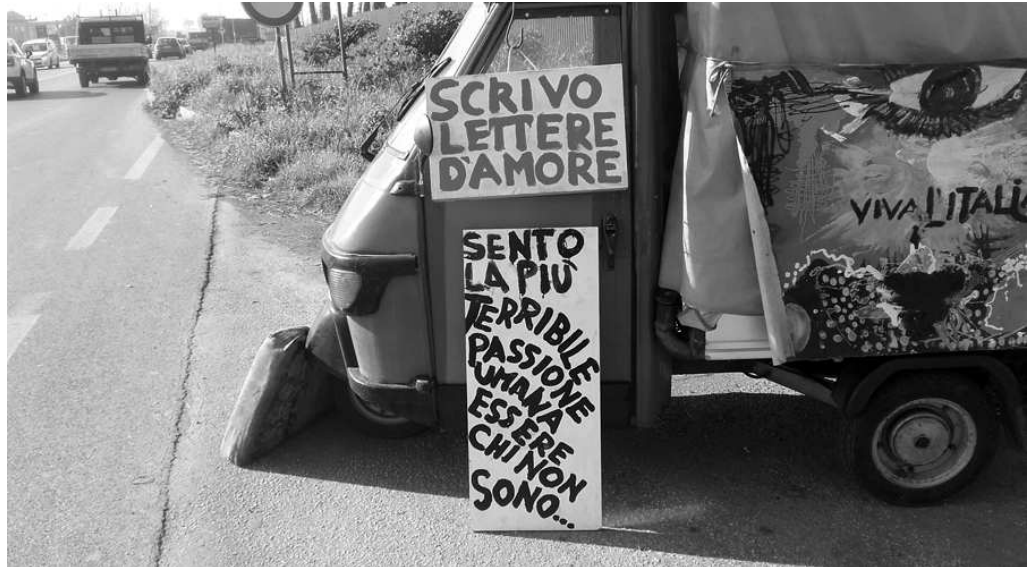 SCRIVO
LETTERE
D'AMORE
SENTO
LA PIÙ
TERRIBILE
PASSIONE
UMANA
ESSERE
CHI NON
SONO...
VIVA L'ITALIA